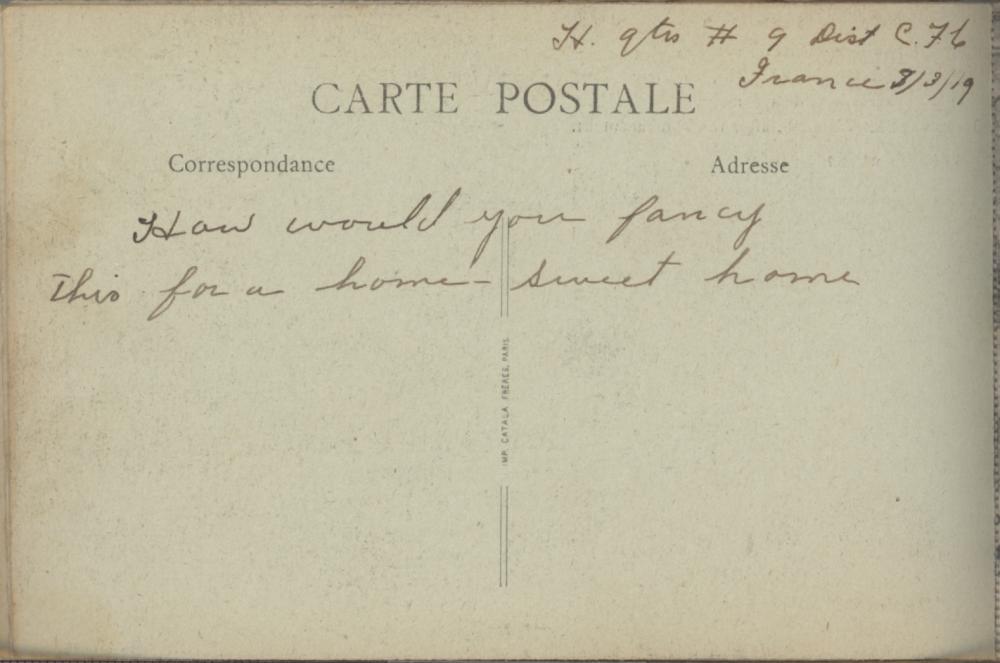 H. qtrs # 9 Dist C. F6
France 3/3/19
CARTE POSTALE
Correspondance
Adresse
How would you fancy
this for a home - sweet home
IMP. CATALA FRÈRES, PARIS